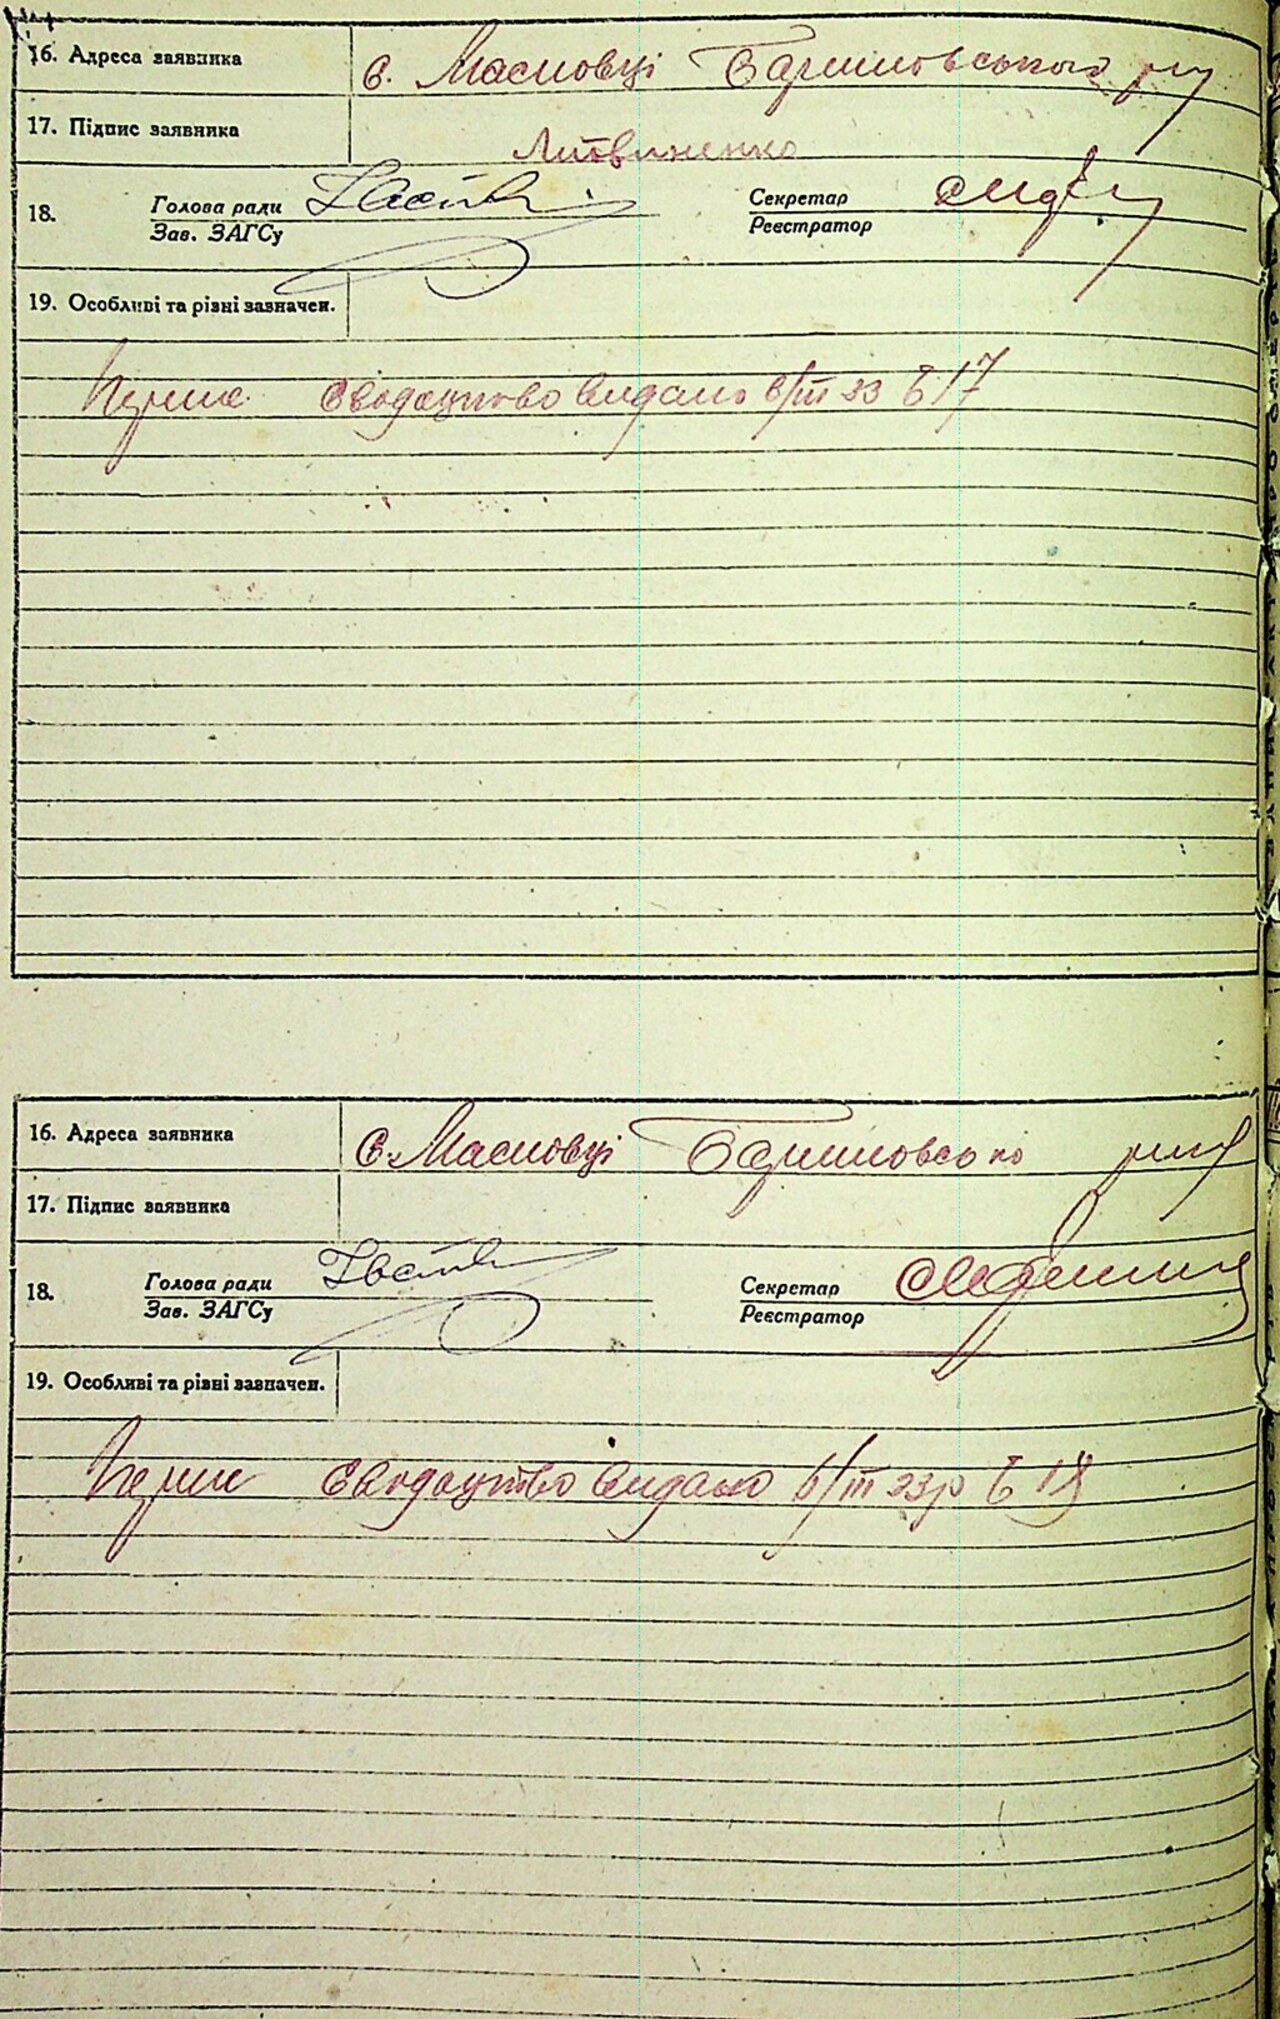 16. Адреса заявника с. Масловці Баришовського р-ну
17. Підпис заявника Литвиненко
18. Голова ради Секретар
Зав. ЗАГСу Реєстратор
19. Особливі та різні зазначен.
Перше Свідоцтво видано 6/III 33 № 17
16. Адреса заявника с. Масловці р-ну
17. Підпис заявника
18. Голова ради Секретар
Зав. ЗАГСу Реєстратор
19. Особливі та різні зазначен.
Перше Свідоцтво видано 6/III 33р № 18